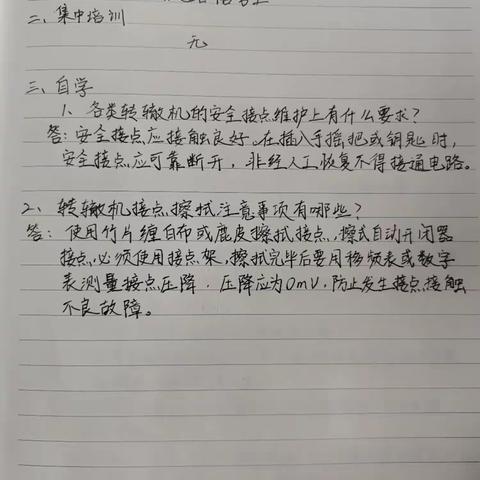 二、集中培训
无
三、自学
1、各类转辙机的安全接点维护上有什么要求？
答：安全接点应接触良好。在插入手摇把或钥匙时，
安全接点应可靠断开，非经人工恢复不得接通电路。
2、转辙机接点擦拭注意事项有哪些？
答：使用竹片缠白布或鹿皮擦拭接点，擦式自动开闭器
接点，必须使用接点架，擦拭完毕后要用移频表或数字
表测量接点压降，压降应为0mV，防止发生接点接触
不良故障。